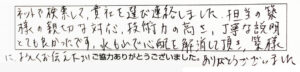 ネットで検索して、貴社を選び連絡しました。担当の皆
様の親切な対応、技術力の高さ、丁寧な説明
とても良かったです。水もれで心配を解消して頂き、皆様
に、よろしくお伝え下さい ありがとうございました
ご協力ありがとうございました。